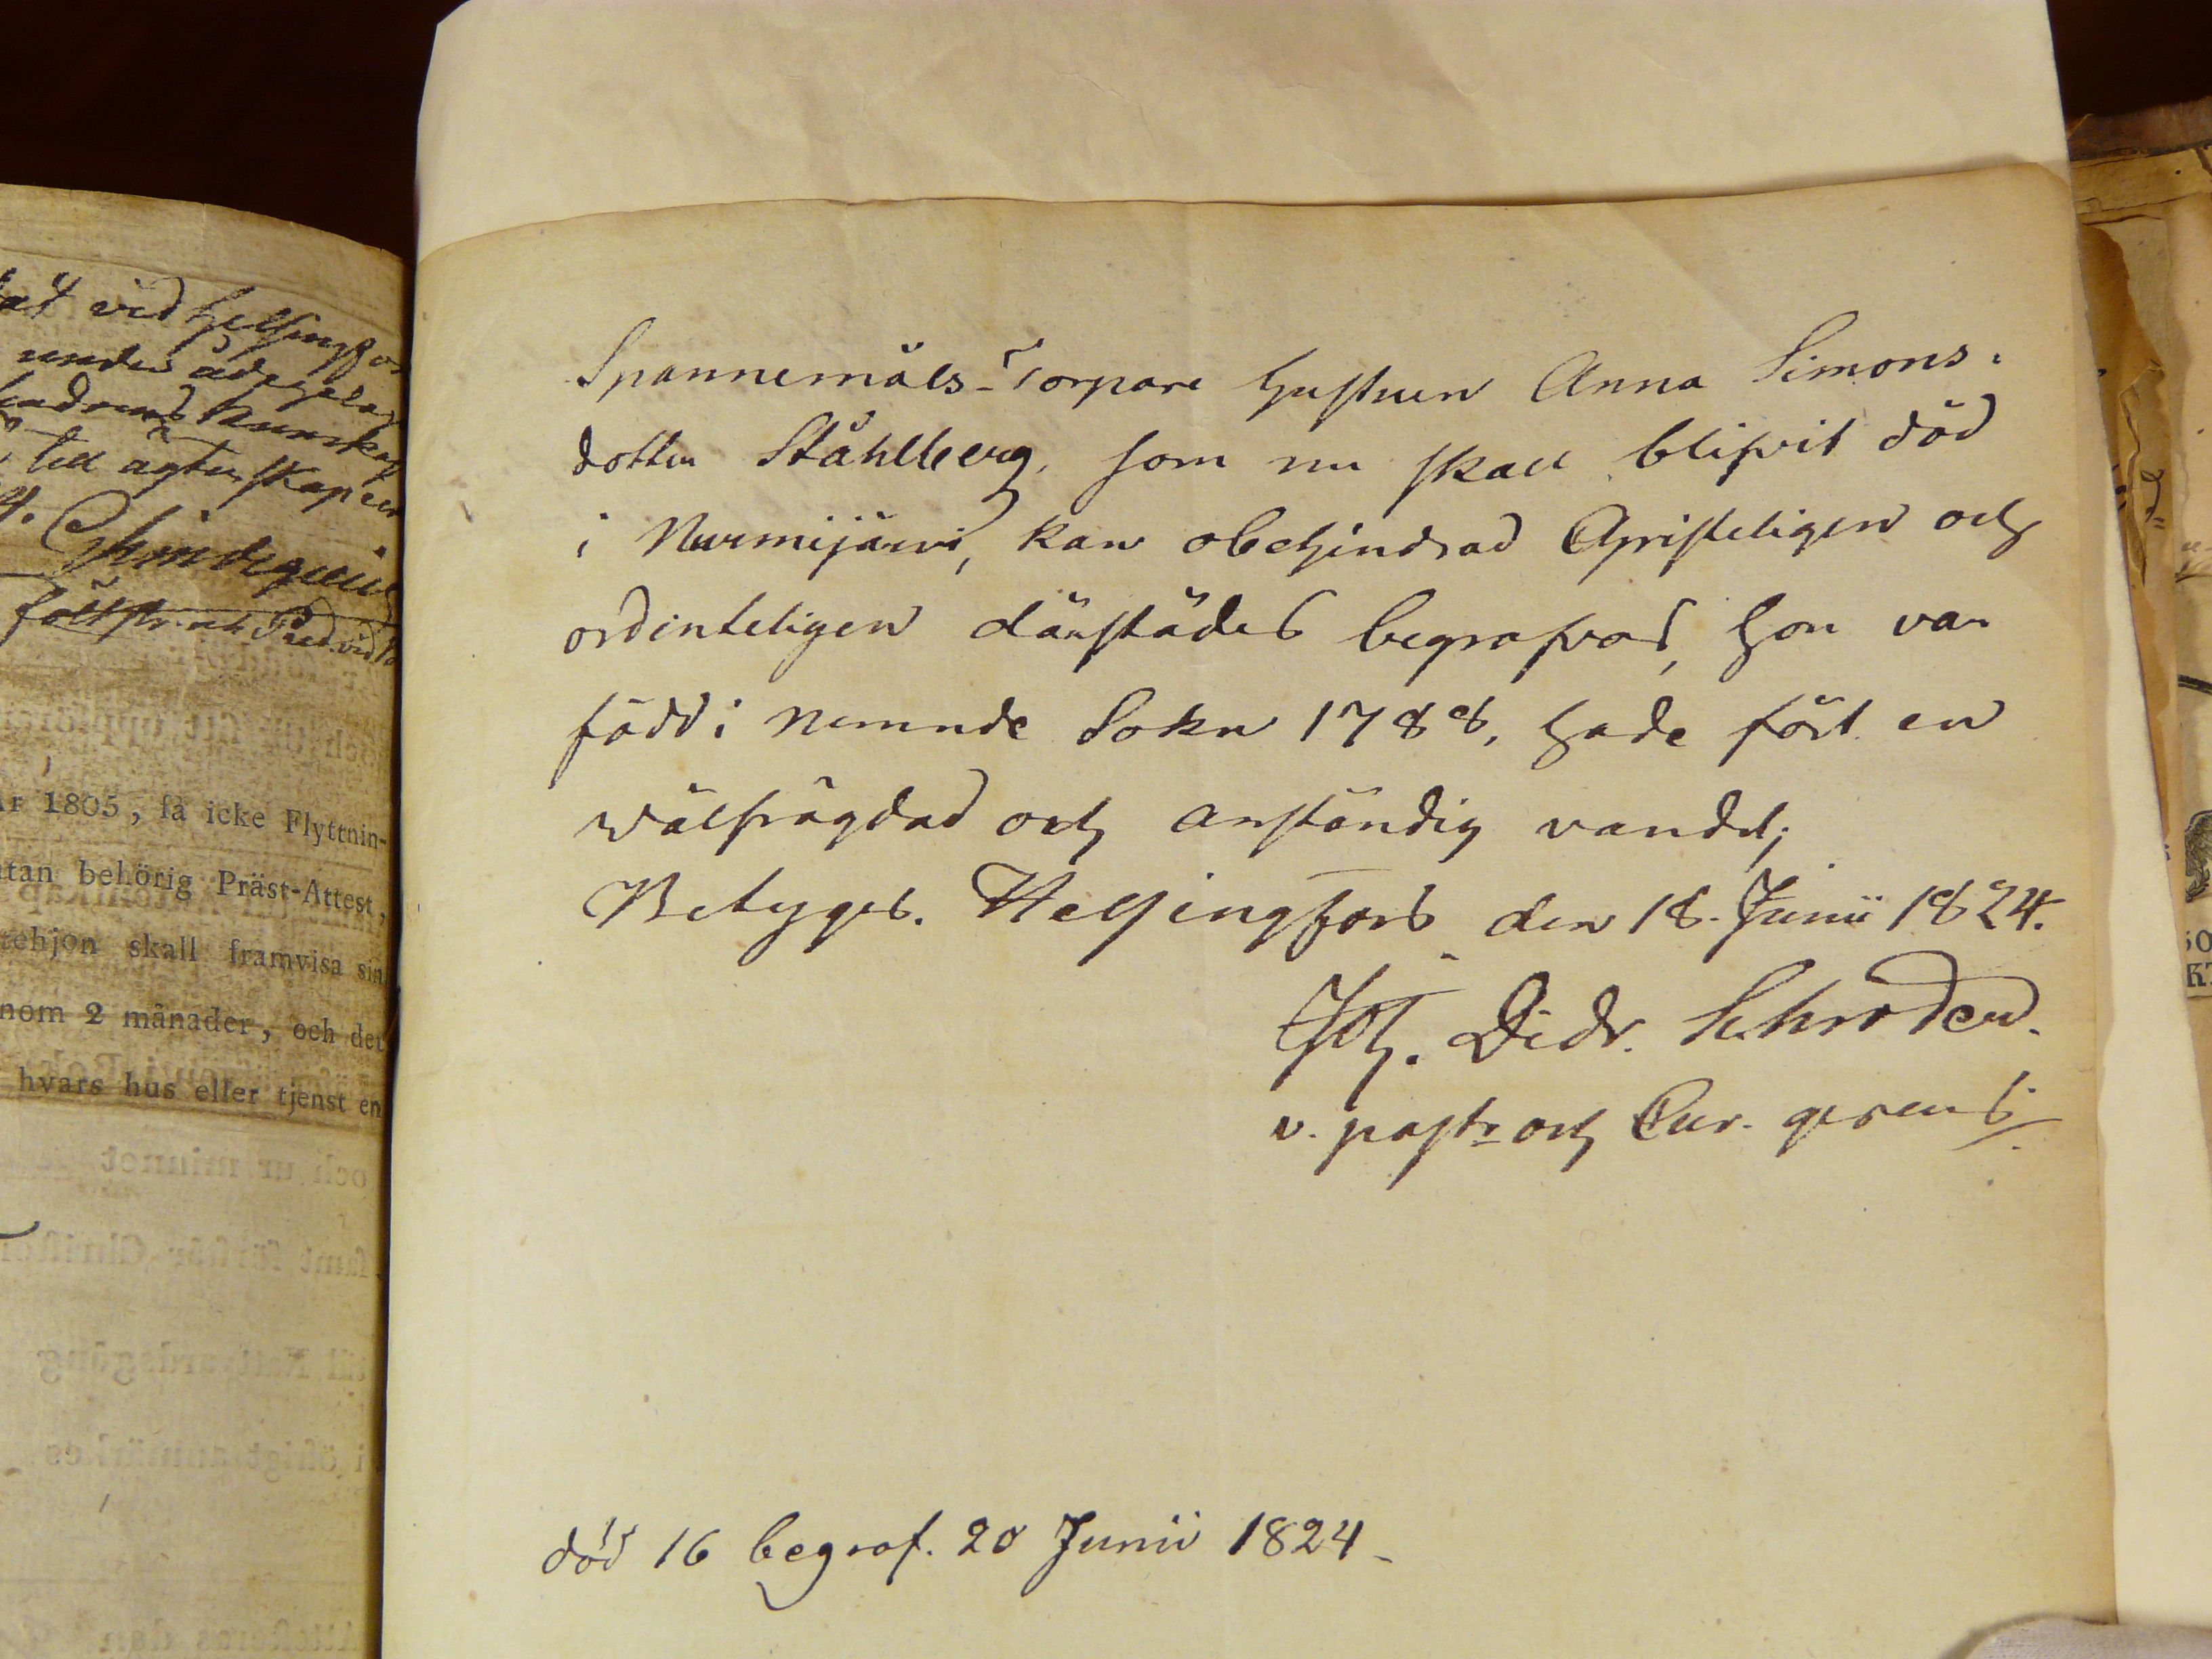 at vid Helsingfor
under ådagala
hadrens kunska
till ägtenskap
fält
År 1805, få icke Flyttnin-
utan behörig Präst-Attest,
tehjon skall framvisa sin
nom 2 månader, och det
hvars hus eller tjenst en
Spannemåls-Torpare hustrun Anna Simons-
dotter Ståhlberg, som nu skall blifvit död
i Nurmijärvi, kan obehindrad Christeligen och
ordinteligen därstädes begrafvas, hon var
född i nemnde Sokn 1788, hade fört en
wälfrägdad och anständig vandel;
Betyges. Helsingfors den 18. Junii 1824.
Joh. Didr. Schroder.
v. past: och Cur. gerens/.
död 16 begraf. 20 Junii 1824-